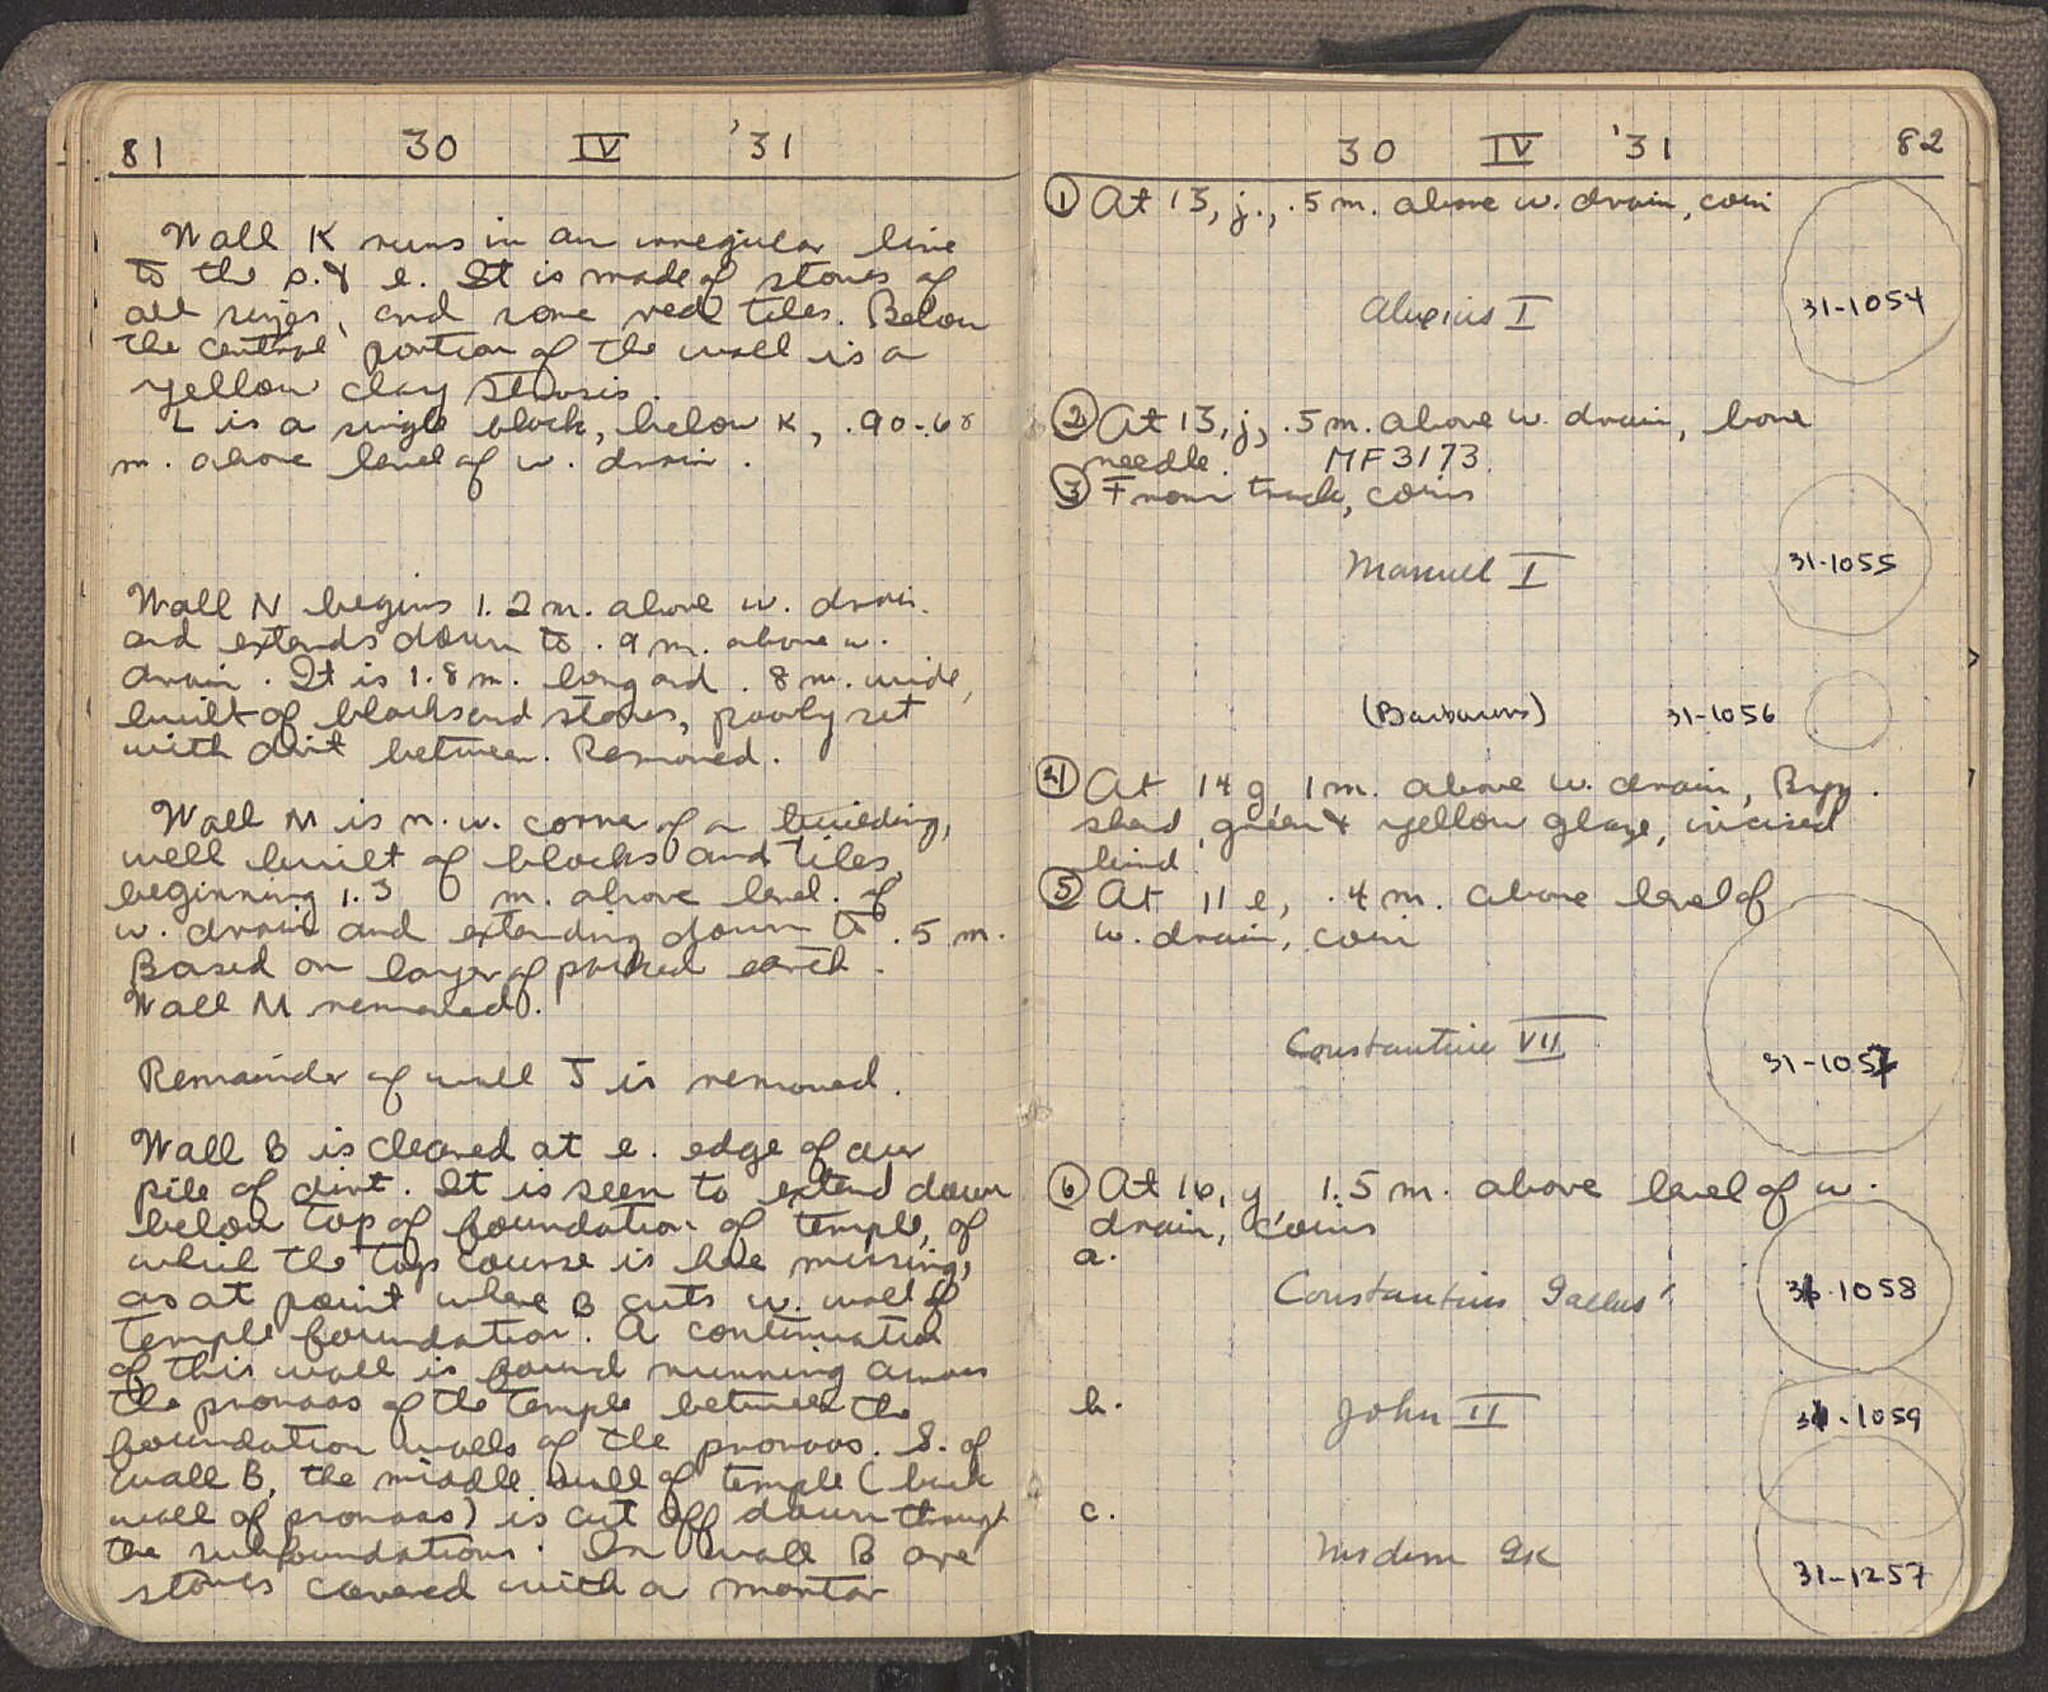 81 30 IV '31
Wall K runs in an irregular line
to the s. & e. It is made of stones of
all sizes, and some red tiles. Below
the central portion of the wall is a
yellow clay stosis.
L is a single block, below K, .90-.68
m. above level of w. drain.
Wall N begins 1.2 m. above w. drain.
and extends down to .9 m. above w.
drain. It is 1.8 m. long and .8 m. wide,
built of blocks and stones, poorly set
with dirt between. Removed.
Wall M is n.w. corner of a building,
well built of blocks and tiles,
beginning 1.3 m. above level of
w. drain and extending down to .5 m.
Based on layer of packed earth.
Wall M removed.
Remainder of wall J is removed.
Wall B is cleared at e. edge of our
pile of dirt. It is seen to extend down
below top of foundation of temple, of
which the top course is here missing,
as at point where B cuts w. wall of
temple foundation. A continuation
of this wall is found running across
the pronaos of the temple between the
foundation walls of the pronaos. S. of
wall B, the middle wall of temple (back
wall of pronaos) is cut off down through
the subfoundations. In wall B are
stones covered with a mortar
30 IV '31 82
① At 13, j., .5 m. above w. drain, coin
Alexius I 31-1054
② At 13, j, .5 m. above w. drain, bone
needle. MF 3173.
③ From track, coins
Manuel I 31-1055
(Barbarous) 31-1056
④ At 14 g, 1 m. above w. drain, Byz.
shard, green & yellow glaze, incised
kind
⑤ At 11 e, .4 m. above level of
w. drain, coin
Constantine VII 31-1057
⑥ At 16, y 1.5 m. above level of w.
drain, coins
a.
Constantius Gallus 31-1058
b. John II 31-1059
c.
Modern Gk 31-1257